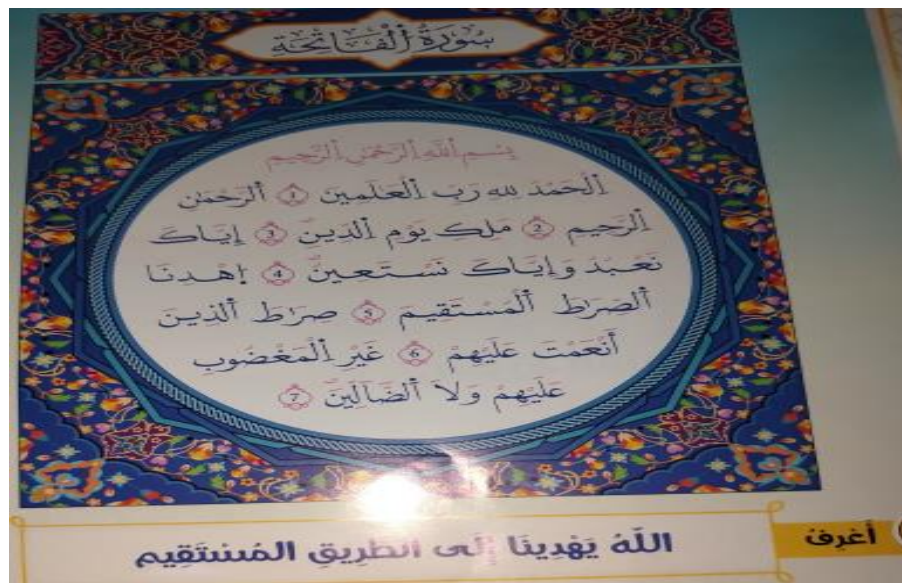 سُورَةُ الْفَاتِحَةِ
بِسْمِ اللَّهِ الرَّحْمَٰنِ الرَّحِيمِ
اَلْحَمْدُ لِلهِ رَبِّ اِلْعَٰلَمِينَ 1 اَلرَّحْمَٰنِ
اِلرَّحِيمِ 2 مَلِكِ يَوْمِ اِلدِّينِ 3 إِيَّاكَ
نَعْبُدُ وَإِيَّاكَ نَسْتَعِينُ 4 اِهْدِنَا
اَلصِّرَٰطَ اَلْمُسْتَقِيمَ 5 صِرَٰطَ اَلذِينَ
أَنْعَمْتَ عَلَيْهِمْ 6 غَيْرِ اِلْمَغْضُوبِ
عَلَيْهِمْ وَلَا اَلضَّالِّينَ 7
أَعْرِفُ
اللَّهُ يَهْدِينَا إِلَى الطَّرِيقِ المُسْتَقِيمِ